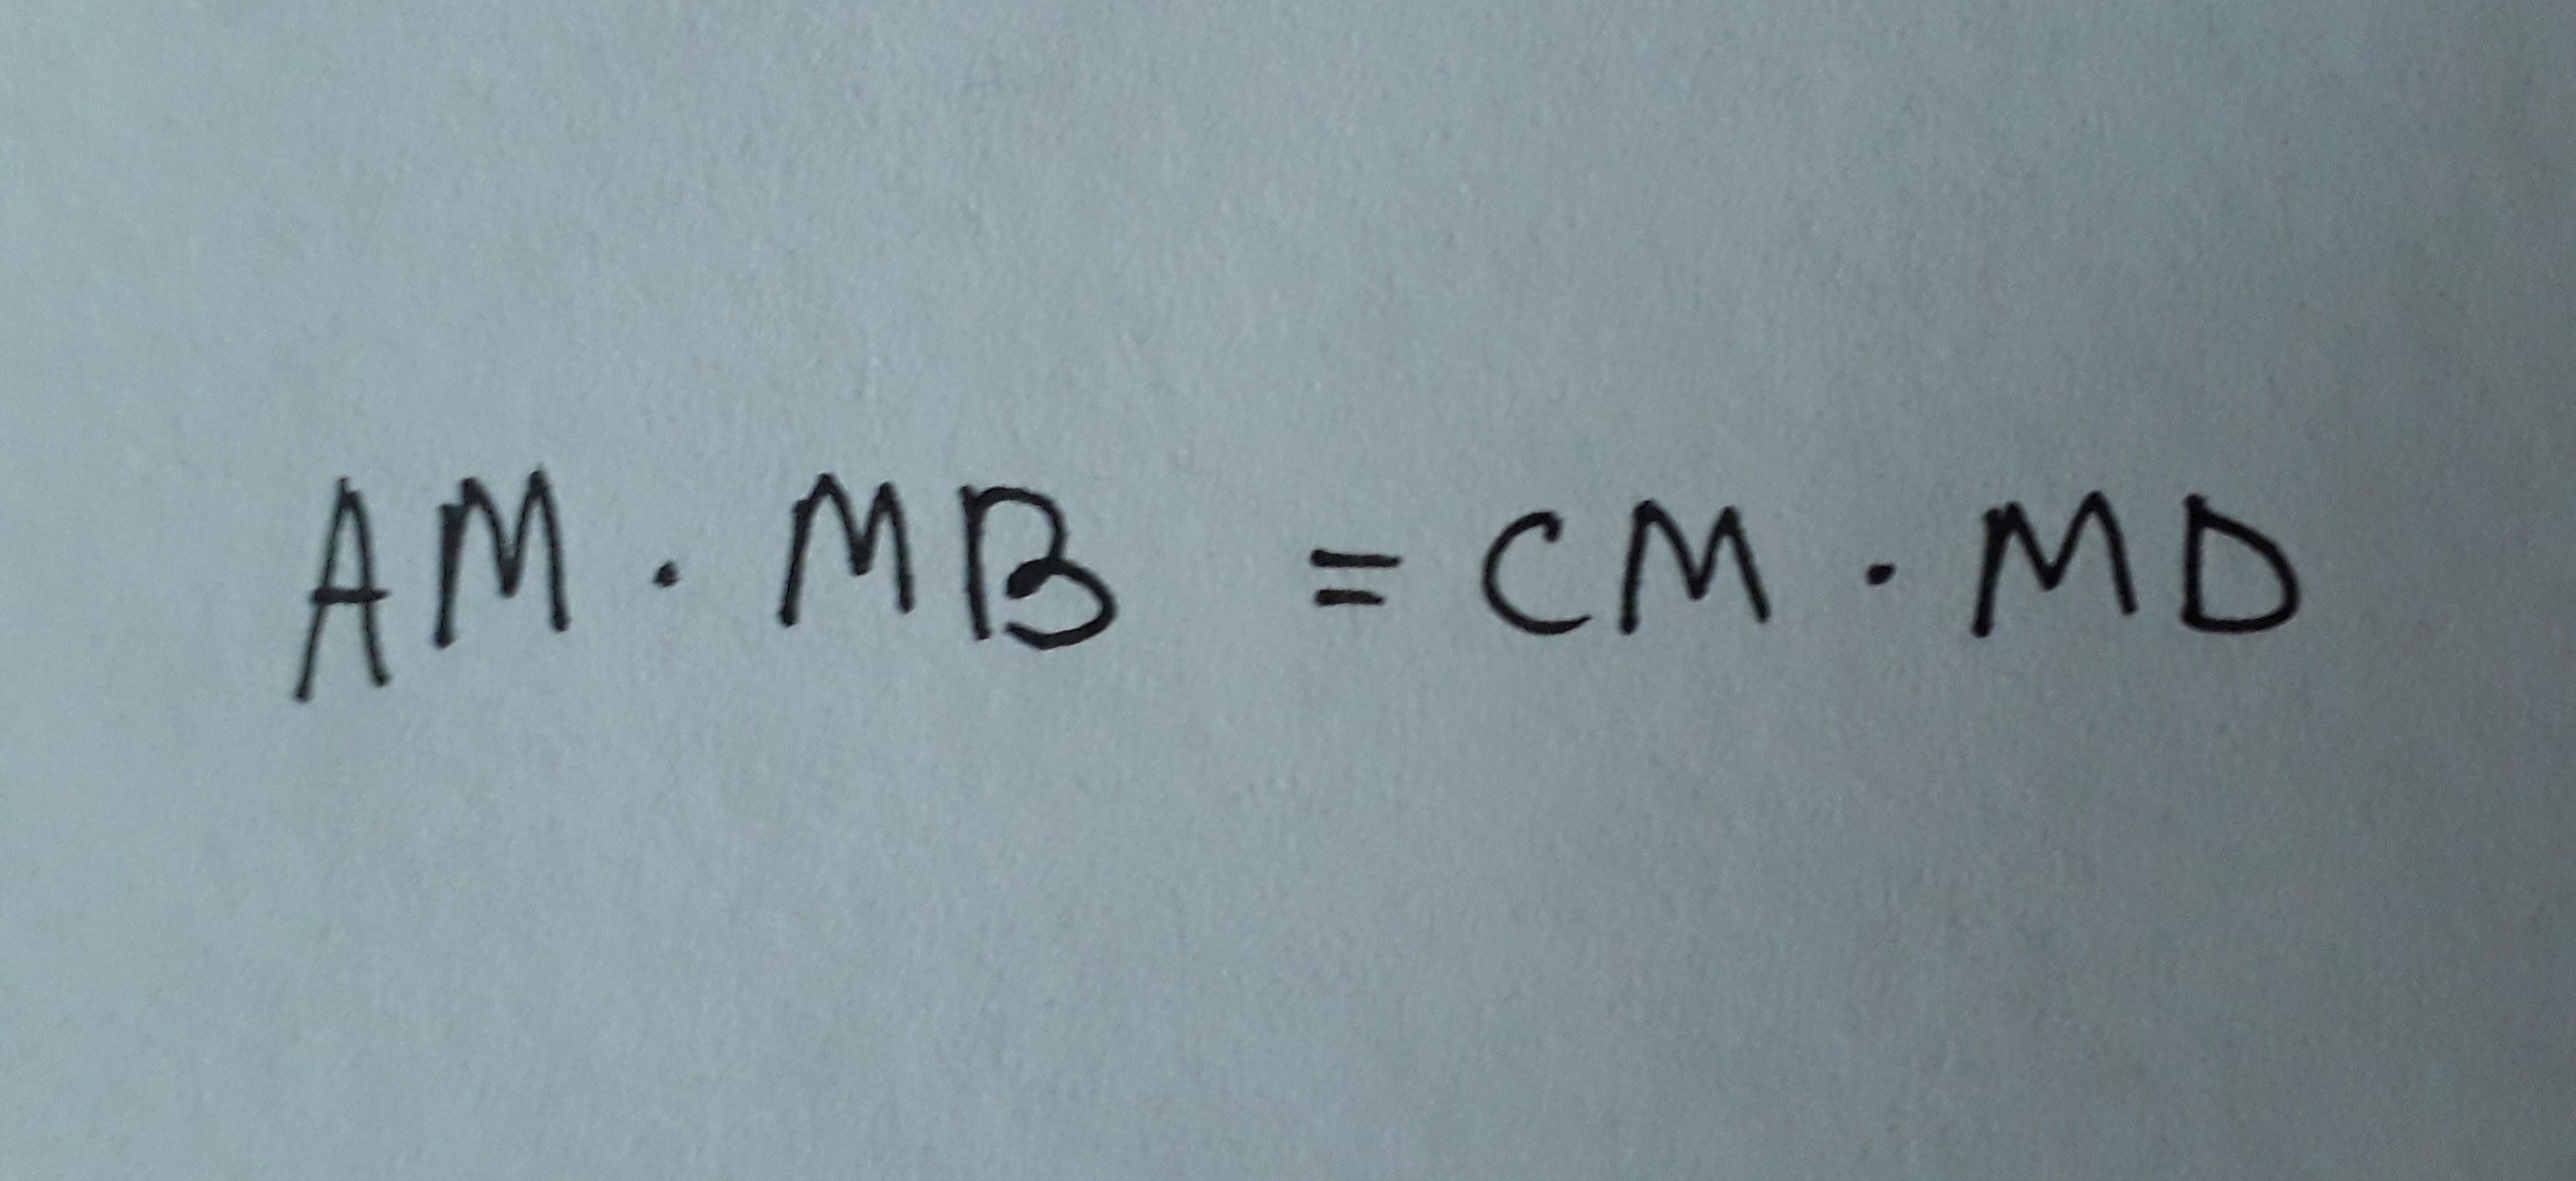 AM · MB = CM · MD